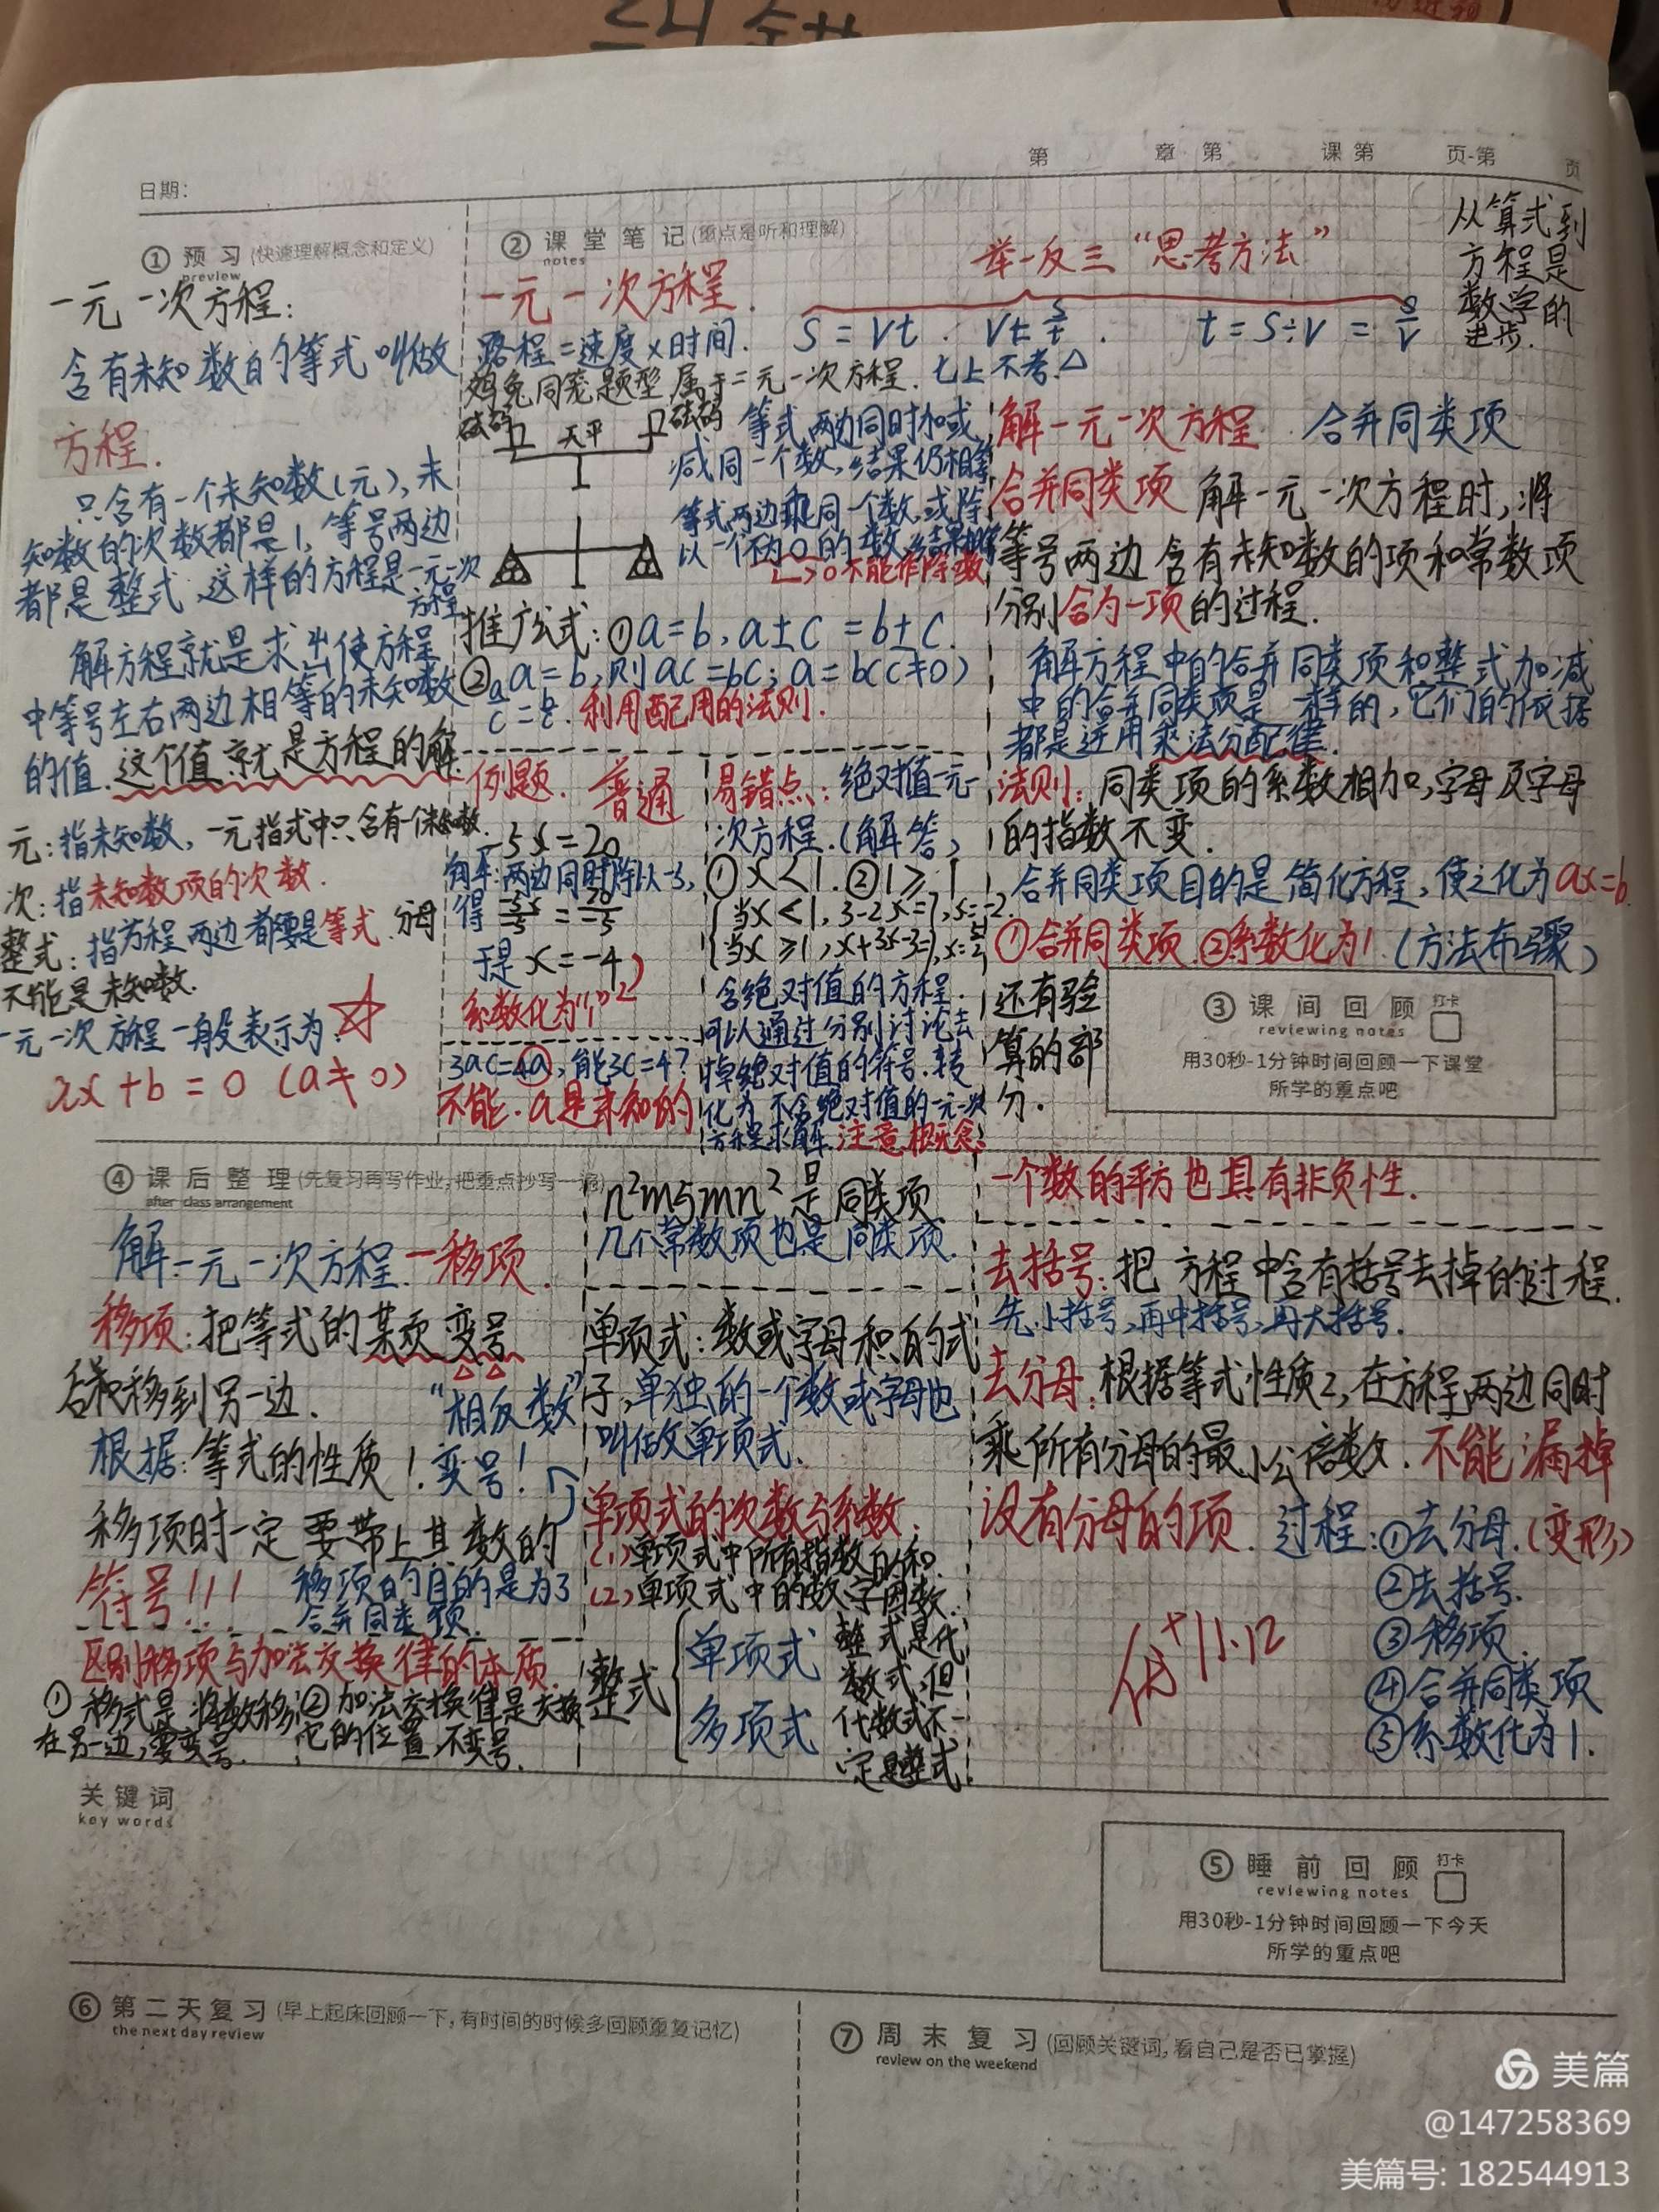 日期：
第 章 第 课 第 页-第 页
① 预习 (快速理解概念和定义)
preview
一元一次方程：
含有未知数的等式叫做
方程.
只含有一个未知数(元),未
知数的次数都是1,等号两边
都是整式,这样的方程是一元一次
方程
解方程就是求出使方程
中等号左右两边相等的未知数
的值.这个值就是方程的解.
元：指未知数,一元指式中只含有一个未知数.
次：指未知数项的次数.
整式：指方程两边都要是等式.分母
不能是未知数.
一元一次方程一般表示为：☆
ax+b=0 (a≠0)
② 课堂笔记 (重点是听和理解)
notes
一元一次方程.
举一反三“思考方法”
从算式到
方程是
数学的
进步.
路程=速度×时间. S=Vt. V=S/t. t=S÷V=S/V
鸡兔同笼题型属于二元一次方程.七上不考.△
砝码 天平 砝码
等式两边同时加或
减同一个数,结果仍相等
等式两边乘同一个数,或除
以一个不为0的数,结果相等
↳0不能作除数
推广公式：①a=b,a±c=b±c.
②a=b,则ac=bc; a=b(c≠0)
a/c=b/c. 利用配用的法则.
例题. 普通
-5x=20
解：两边同时除以-5,
得 -5x/-5=20/-5
于是x=-4
系数化为“1”
3ac=4a,能3c=4?
不能.a是未知的
易错点：绝对值一元一
次方程.(解答)
①x<1.②1≥1
当x<1,3-2x=7,x=-2.
含绝对值的方程.
可以通过分别讨论去
掉绝对值的符号.转
化为不含绝对值的一元一次
方程求解.注意概念.
解一元一次方程 合并同类项
合并同类项 解一元一次方程时,将
等号两边含有未知数的项和常数项
分别合为一项的过程.
解方程中的合并同类项和整式加减
中的合并同类项是一样的,它们的依据
都是运用乘法分配律.
法则：同类项的系数相加,字母及字母
的指数不变.
合并同类项目的是简化方程,使之化为ax=b.
①合并同类项.②系数化为1.(方法布骤)
还有验
算的部
分.
③ 课间回顾 打卡
reviewing notes
用30秒-1分钟时间回顾一下课堂
所学的重点吧
④ 课后整理 (先复习再写作业,把重点抄写一遍)
after class arrangement
解一元一次方程.一移项.
移项：把等式的某项变号
后移到另一边.
“相反数”
根据：等式的性质！变号！
移项时一定要带上其数的
符号!!! 移项的目的是为了
合并同类项.
区别移项与加法交换律的本质.
①移式是将数移
在另一边,要变号.
②加法交换律是交换
它的位置,不变号.
n²m5mn²是同类项
几个常数项也是同类项.
单项式：数或字母积的式
子,单独的一个数或字母也
叫做单项式.
单项式的次数与系数.
(1)单项式中所有指数的和.
(2)单项式中的数字因数.
整式 { 单项式 多项式
整式是代
数式,但
代数式不一
定是整式.
一个数的平方也具有非负性.
去括号：把方程中含有括号去掉的过程.
先小括号,再中括号,再大括号.
去分母：根据等式性质2,在方程两边同时
乘所有分母的最小公倍数.不能漏掉
没有分母的项. 过程：①去分母.(变形)
②去括号.
③移项.
④合并同类项
⑤系数化为1.
优+ 11.12
关键词
key words
⑤ 睡前回顾 打卡
reviewing notes
用30秒-1分钟时间回顾一下今天
所学的重点吧
⑥ 第二天复习 (早上起床回顾一下,有时间的时候多回顾重复记忆)
the next day review
⑦ 周末复习 (回顾关键词,看自己是否已掌握)
review on the weekend
美篇
@147258369
美篇号: 182544913